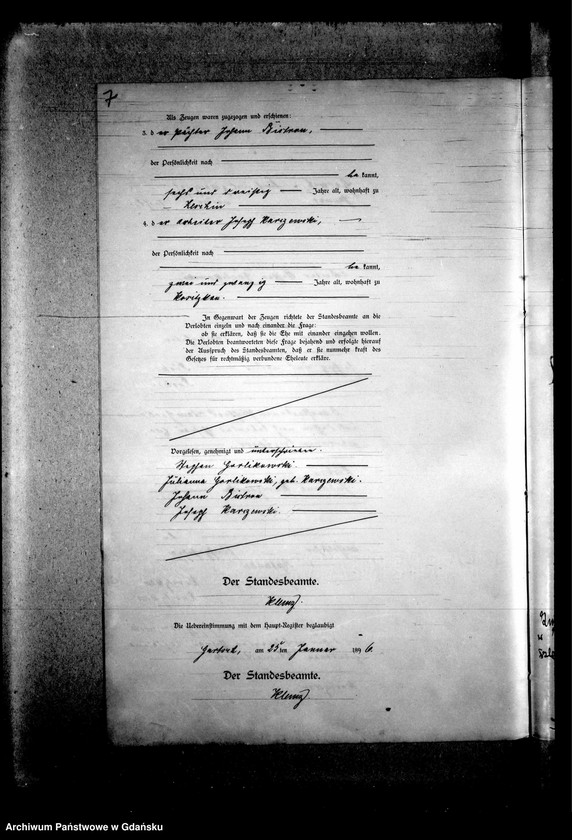 7
Als Zeugen waren zugezogen und erschienen:
3. der Pächter Johann Bistron,
der Persönlichkeit nach
bekannt,
sechs und dreißig Jahre alt, wohnhaft zu
4. der Arbeiter Joseph Karczewski,
der Persönlichkeit nach
bekannt,
zwei und zwanzig Jahre alt, wohnhaft zu
In Gegenwart der Zeugen richtete der Standesbeamte an die
Verlobten einzeln und nach einander die Frage:
ob sie erklären, daß sie die Ehe mit einander eingehen wollen.
Die Verlobten beantworteten diese Frage bejahend und erfolgte hierauf
der Ausspruch des Standesbeamten, daß er sie nunmehr kraft des
Gesetzes für rechtmäßig verbundene Eheleute erkläre.
Vorgelesen, genehmigt und unterschrieben.
Stephan Gorlikowski.
Julianna Gorlikowski, geb. Karczewski.
Johann Bistron
Joseph Karczewski.
Der Standesbeamte.
Die Uebereinstimmung mit dem Haupt-Register beglaubigt
am 25ten Januar 1896.
Der Standesbeamte.
Archiwum Państwowe w Gdańsku